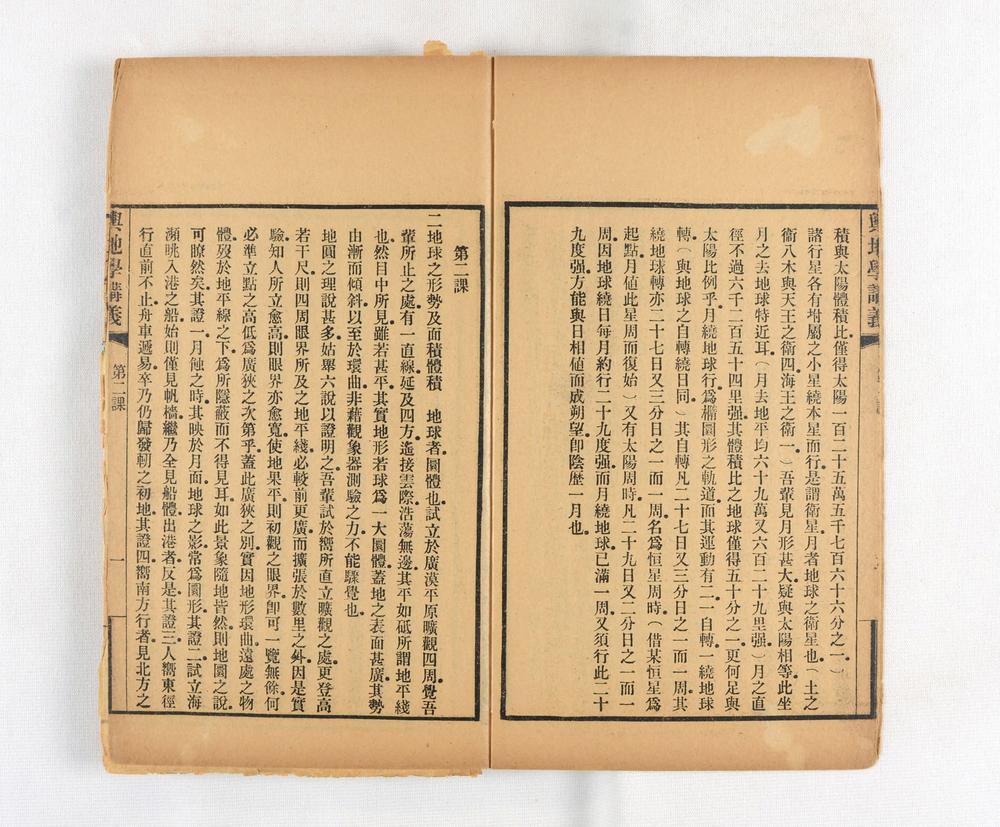 積與太陽體積比僅得太陽一百二十五萬五千七百六十六分之一）
諸行星各有坿屬之小星繞本星而行是謂衛星月者地球之衛星也（土之
衛八木與天王之衛四海王之衛一）吾輩見月形甚大疑與太陽相等此坐
月之去地球特近耳（月去地平均六十九萬又六百二十九里强）月之直
徑不過六千二百五十四里强其體積比之地球僅得五十分之一更何足與
太陽比例乎月繞地球行爲橢圓形之軌道而其運動有二一自轉一繞地球
轉（與地球之自轉繞日同）其自轉凡二十七日又三分日之一而一周其
繞地球轉亦二十七日又三分日之一而一周名爲恒星周時（借某恒星爲
起點月値此星周而復始）又有太陽周時凡二十九日又二分日之一而一
周因地球繞日每月約行二十九度强而月繞地球已滿一周又須行此二十
九度强方能與日相値而成朔望卽陰歷一月也
第二課
二地球之形勢及面積體積　地球者圓體也試立於廣漠平原曠觀四周覺吾
輩所止之處有一直線延及四方遙接雲際浩蕩無邊其平如砥所謂地平綫
也然目中所見雖若甚平其實地形若球爲一大圓體蓋地之表面甚廣其勢
由漸而傾斜以至於環曲非藉觀象器測驗之力不能驟覺也
地圓之理說甚多姑舉六說以證明之吾輩試於嚮所直立曠觀之處更登高
若干尺則四周眼界所及之地平綫必較前更廣而擴張於數里之外因是實
驗知人所立愈高則眼界亦愈寬使地果平則初觀之眼界卽可一覽無餘何
必準立點之高低爲廣狹之次第乎蓋此廣狹之別實因地形環曲遠處之物
體歿於地平線之下爲所隱蔽而不得見耳如此景象隨地皆然則地圓之說
可瞭然矣其證一月蝕之時其映於月面地球之影常爲圜形其證二試立海
濒眺入港之船始則僅見帆檣繼乃全見船體出港者反是其證三人嚮東徑
行直前不止舟車遞易卒乃仍歸發軔之初地其證四嚮南方行者見北方之
輿地學講義
第二課
一
輿地學講義